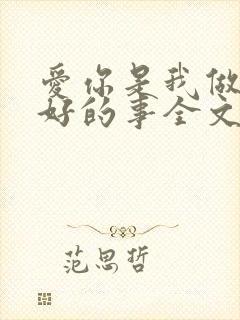 爱你是我做
好的事全文
范思哲